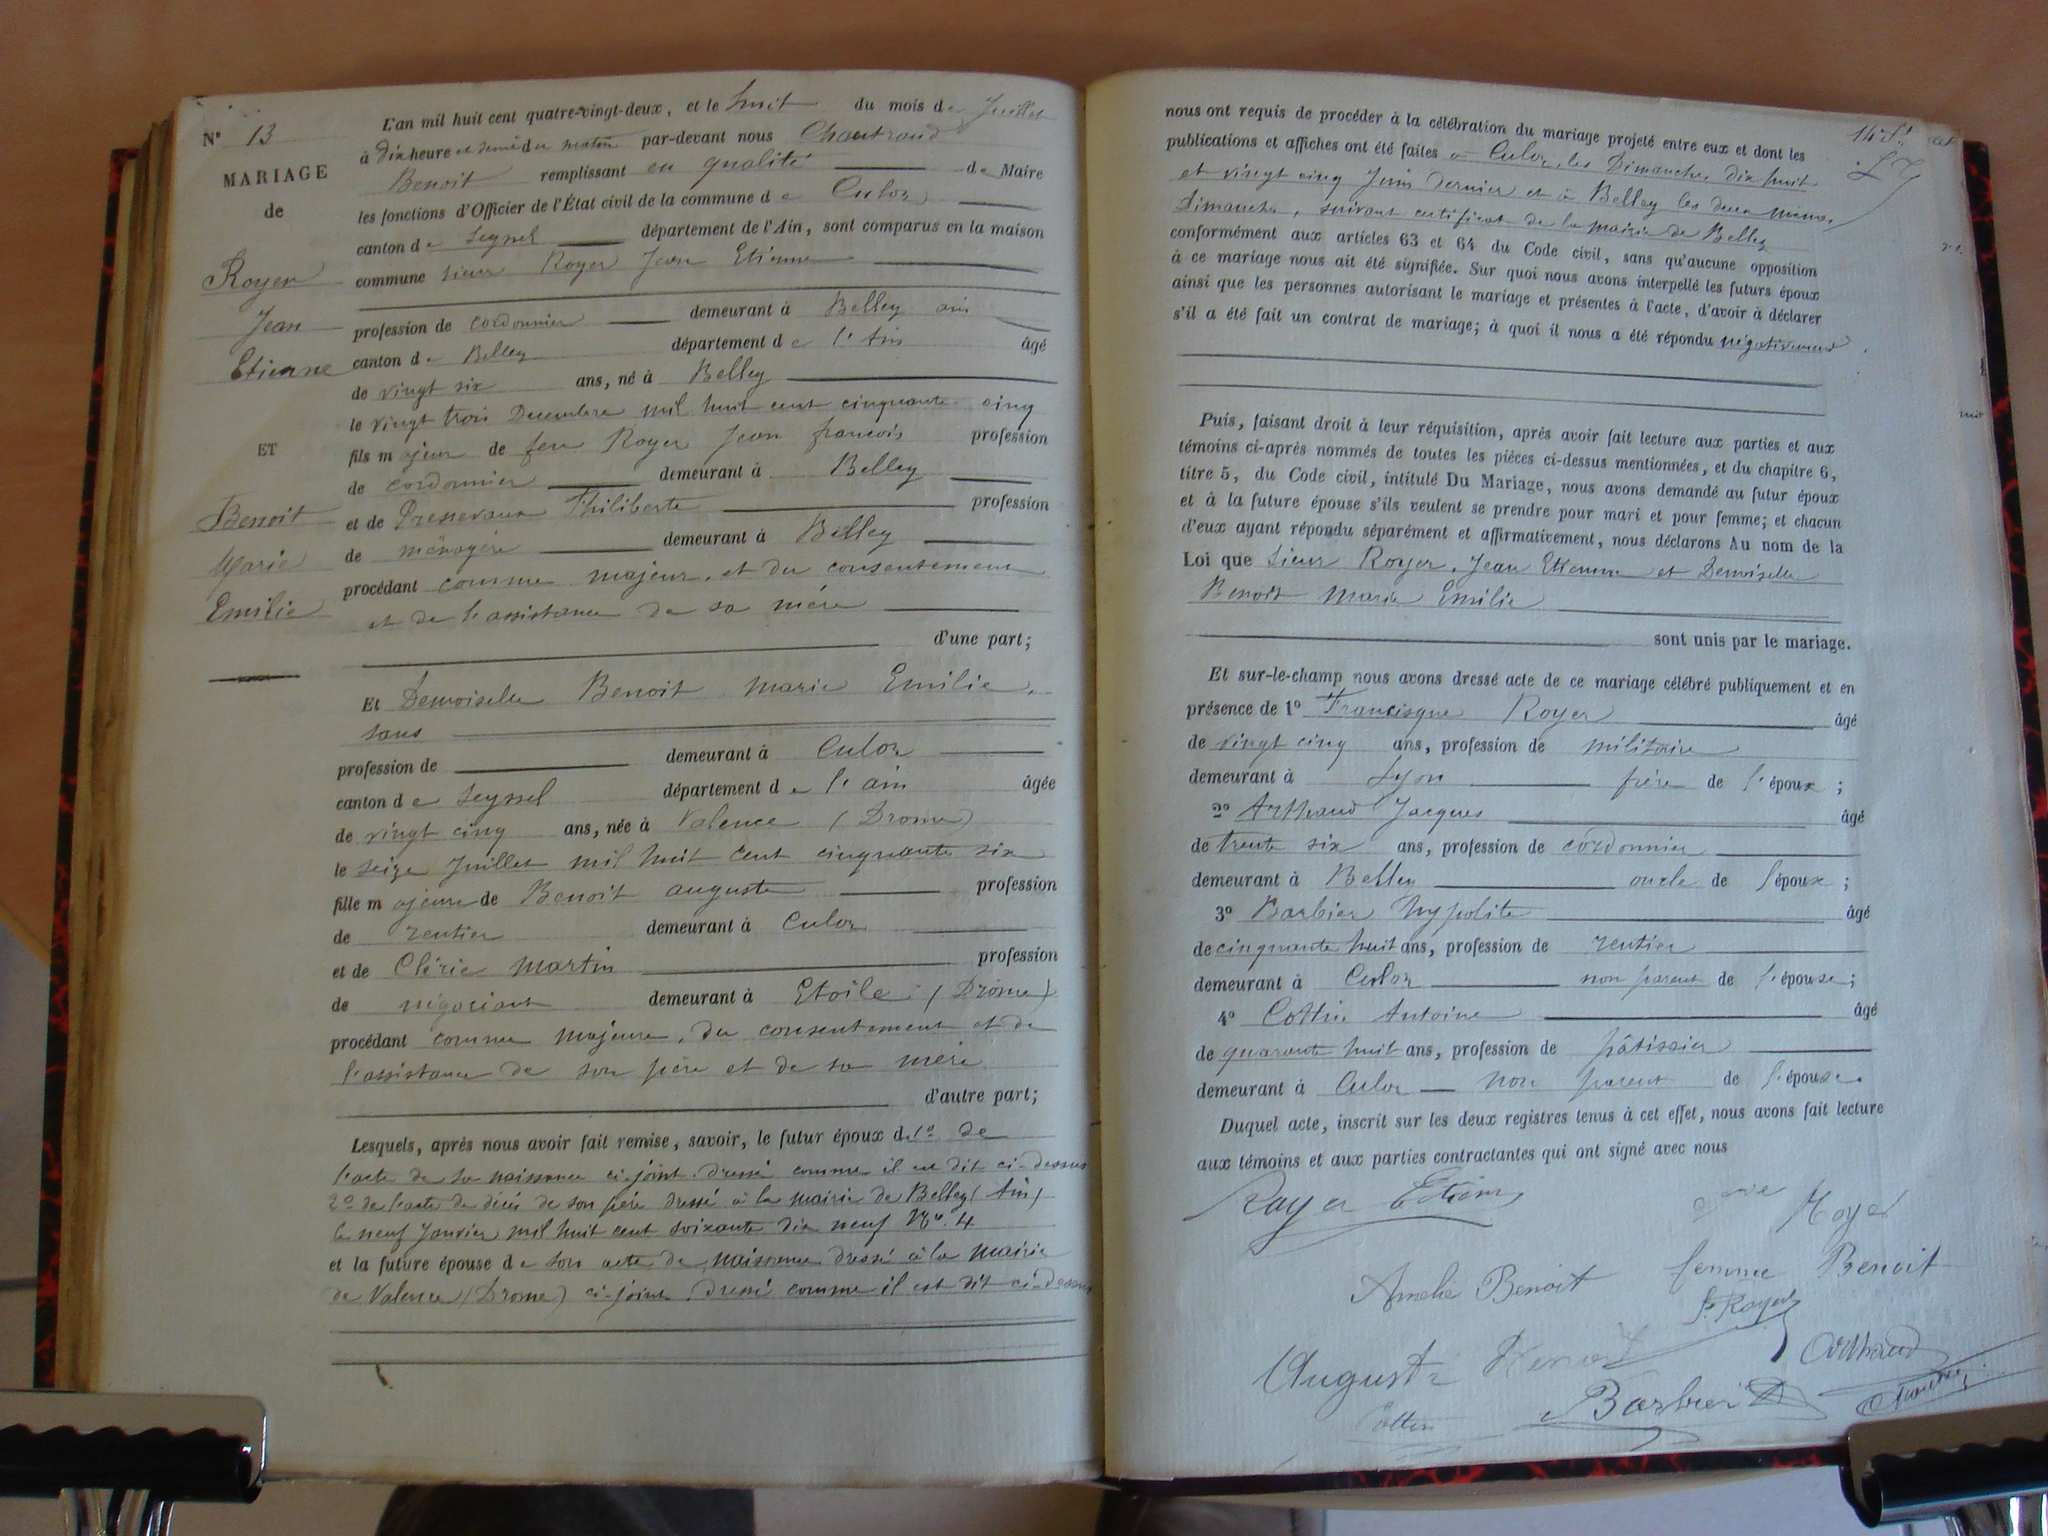 N° 13
MARIAGE
de
Royer
Jean
Etienne
ET
Benoit
Marie
Emilie
L'an mil huit cent quatre-vingt-deux, et le huit du mois de Juillet
à dix heure et demi du matin par-devant nous Chautraud
Benoit remplissant en qualité de Maire
les fonctions d'Officier de l'État civil de la commune de Culoz
canton de Seyssel département de l'Ain, sont comparus en la maison
commune sieur Royer Jean Etienne
profession de cordonnier demeurant à Belley ain
canton de Belley département de l'Ain âgé
de vingt six ans, né à Belley
le vingt trois Decembre mil huit cent cinquante cinq
fils majeur de feu Royer Jean francois profession
de cordonnier demeurant à Belley
et de Pressevaux Philiberte profession
de ménagère demeurant à Belley
procédant comme majeur, et du consentement
et de l'assistance de sa mère
d'une part;
Et Demoiselle Benoit Marie Emilie,
sans
profession de demeurant à Culoz
canton de Seyssel département de l'ain âgée
de vingt cinq ans, née à Valence (Drome)
le seize Juillet mil huit cent cinquante six
fille majeure de Benoit auguste profession
de rentier demeurant à Culoz
et de Clérie martin profession
de négociant demeurant à Etoile (Drôme)
procédant comme majeure, du consentement et de
l'assistance de son père et de sa mère
d'autre part;
Lesquels, après nous avoir fait remise, savoir, le futur époux d 1° de
l'acte de sa naissance ci-joint dressé comme il est dit ci-dessus
2° de l'acte de décès de son père dressé à la mairie de Belley (Ain)
le neuf Janvier mil huit cent soixante dix neuf N° 4
et la future épouse de son acte de naissance dressé à la mairie
de Valence (Drome) ci-joint, dressé comme il est dit ci-dessus
nous ont requis de procéder à la célébration du mariage projeté entre eux et dont les
publications et affiches ont été faites à Culoz, les Dimanches dix huit
et vingt cinq Juin dernier et à Belley les deux mêmes
Dimanches, suivant certificat de la mairie de Belley
conformément aux articles 63 et 64 du Code civil, sans qu'aucune opposition
à ce mariage nous ait été signifiée. Sur quoi nous avons interpellé les futurs époux
ainsi que les personnes autorisant le mariage et présentes à l'acte, d'avoir à déclarer
s'il a été fait un contrat de mariage; à quoi il nous a été répondu négativement
Puis, faisant droit à leur réquisition, après avoir fait lecture aux parties et aux
témoins ci-après nommés de toutes les pièces ci-dessus mentionnées, et du chapitre 6,
titre 5, du Code civil, intitulé Du Mariage, nous avons demandé au futur époux
et à la future épouse s'ils veulent se prendre pour mari et pour femme; et chacun
d'eux ayant répondu séparément et affirmativement, nous déclarons Au nom de la
Loi que Sieur Royer, Jean Etienne et Demoiselle
Benoit Marie Emilie
sont unis par le mariage.
Et sur-le-champ nous avons dressé acte de ce mariage célébré publiquement et en
présence de 1° Francisque Royer âgé
de vingt cinq ans, profession de militaire
demeurant à Lyon frère de l'époux;
2° Arthaud Jacques âgé
de trente six ans, profession de cordonnier
demeurant à Belley oncle de l'époux;
3° Barbier hypolite âgé
de cinquante huit ans, profession de rentier
demeurant à Culoz non parent de l'épouse;
4° Cottin Antoine âgé
de quarante huit ans, profession de pâtissier
demeurant à Culoz non parent de l'épouse.
Duquel acte, inscrit sur les deux registres tenus à cet effet, nous avons fait lecture
aux témoins et aux parties contractantes qui ont signé avec nous
Royer Etienne
Royer
Amelie Benoit femme Benoit
f. Royer
Auguste Benoit Arthaud
Cottin Barbier